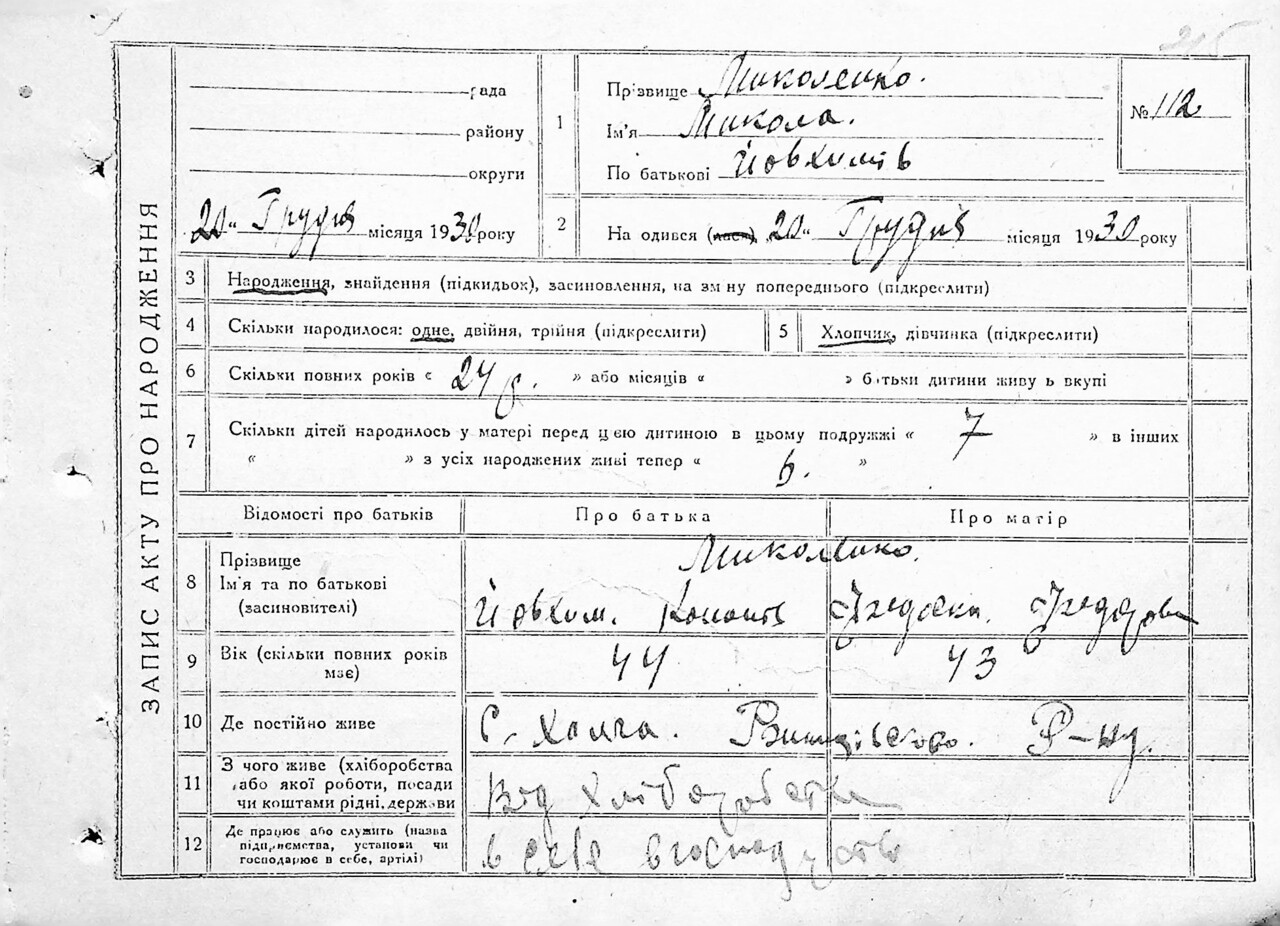 ЗАПИС АКТУ ПРО НАРОДЖЕННЯ
рада
району
округи
20 " Грудня місяця 1930 року
1
Прізвище Миколенко.
Ім'я Микола.
По батькові Йовхимів
№ 112
2
На одився 20 " Грудня місяця 1930 року
3 Народження, знайдення (підкидьок), засиновлення, на зм ну попереднього (підкреслити)
4 Скільки народилося: одне, двійня, трійня (підкреслити)
5 Хлопчик, дівчинка (підкреслити)
6 Скільки повних років « 24 р. » або місяців « » батьки дитини живу ь вкупі
7 Скільки дітей народилось у матері перед цією дитиною в цьому подружжі « 7 » в інших
« » з усіх народжених живі тепер « 6. »
Відомості про батьків Про батька Про матір
8 Прізвище
Ім'я та по батькові
(засновителі)
Миколенко.
Йовхим. Кононів Федоска. Федорова
9 Вік (скільки повних років
має)
44 43
10 Де постійно живе С. Халча. Р-ну.
11 З чого живе (хліборобства
або якої роботи, посади
чи коштами рідні, держави
Від хліборобства
12 Де працює або служить (назва
підприємства, установи чи
господарює в себе, артілі)
в себе в господарстві